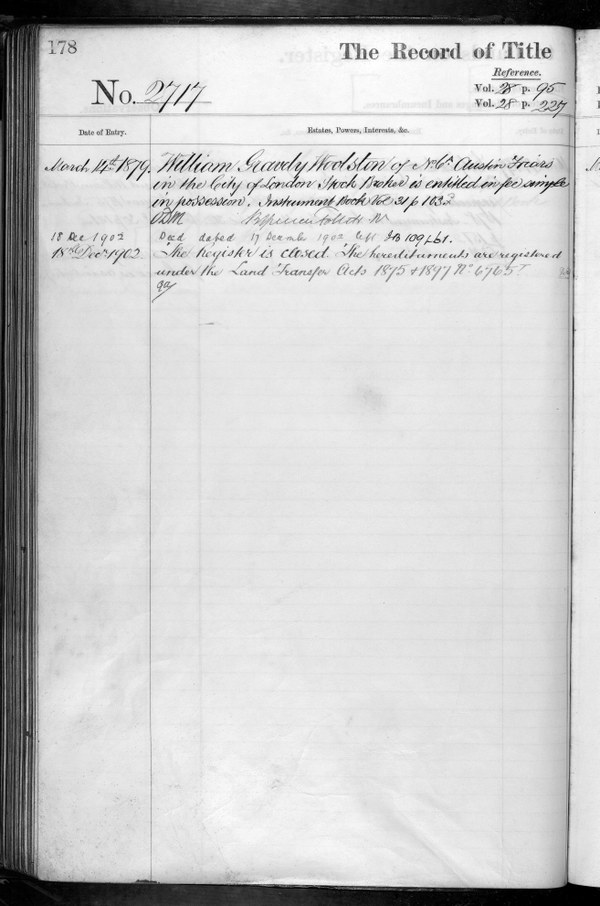 178
The Record of Title
Reference.
No. 2717
Vol. 28 p. 95
Vol. 28 p. 227
Date of Entry.
Estates, Powers, Interests, &c.
March 14th 1879. William Gravely Woolston of No. 6 Austin Friars
in the City of London Stock Broker is entitled in fee simple
in possession. Instrument Book Vol 31 p 103
18 Dec 1902 Deed dated 17 December 1902 left IB 109
18th Decr 1902 The Register is closed. The hereditaments are registered
under the Land Transfer Acts 1875 & 1897 No 67657